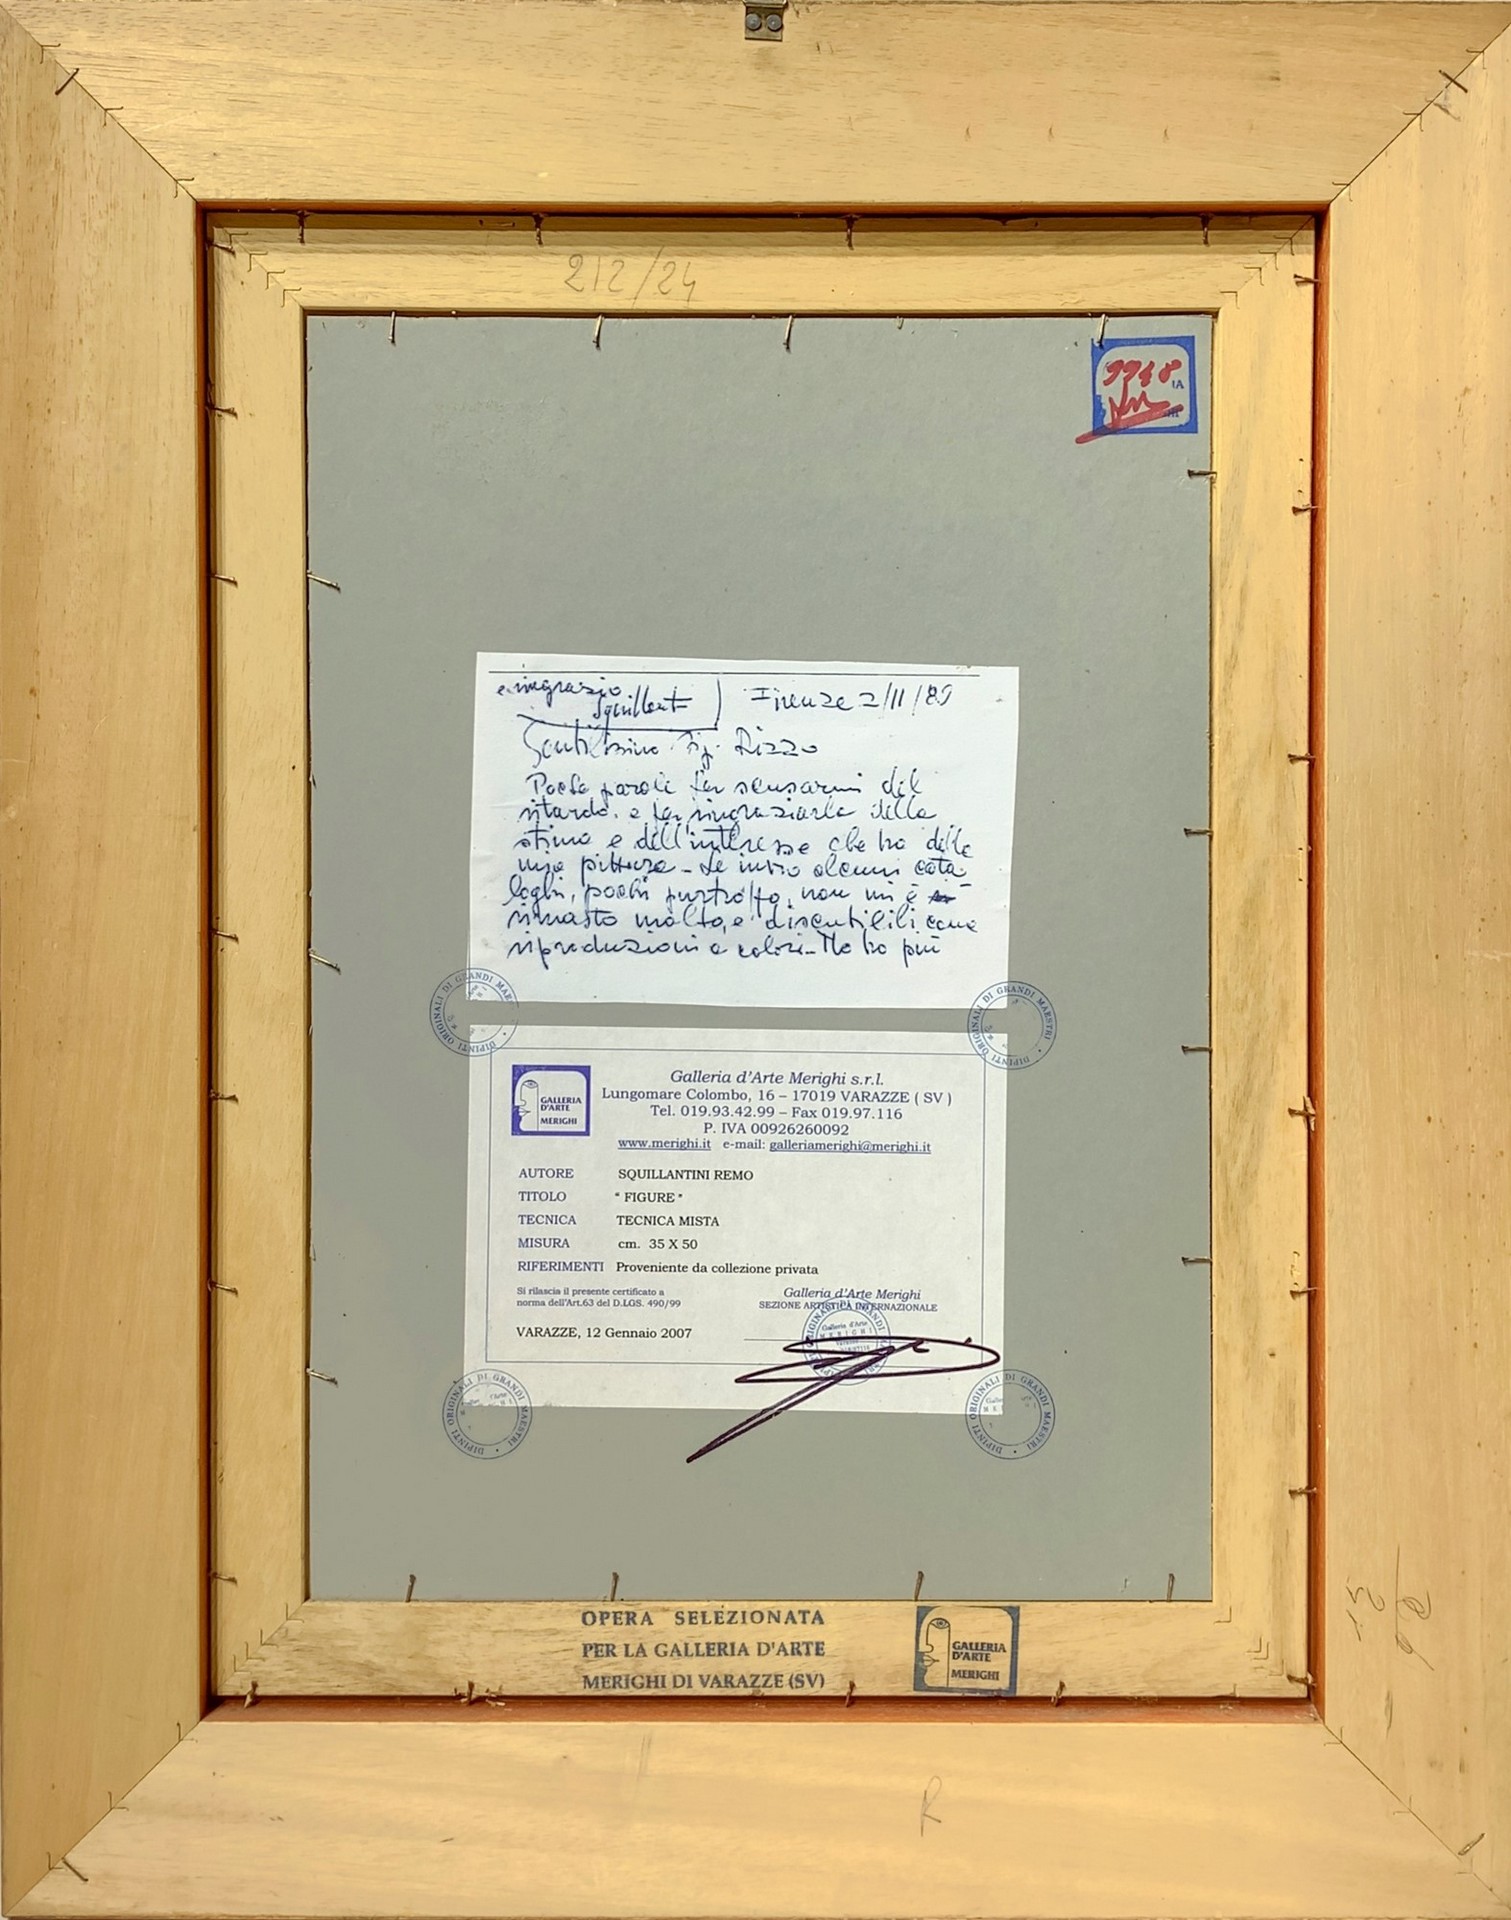 212/24
9948
e ringrazio
Squillant
Firenze 2/11/89
Gentilissimo Sig. Rizzo
Poche parole per scusarmi del
ritardo. e per ringraziarla della
stima e dell'interesse che ha della
mia pittura - Le invio alcuni cata-
loghi, pochi purtroppo, non mi è
rimasto molto, e discutibili come
riproduzioni a colori - Ma ho più
DIPINTI ORIGINALI DI GRANDI MAE
DIPINTI ORIGINALI DI GRANDI MAESTRI
GALLERIA
D'ARTE
MERIGHI
Galleria d'Arte Merighi s.r.l.
Lungomare Colombo, 16 – 17019 VARAZZE ( SV )
Tel. 019.93.42.99 – Fax 019.97.116
P. IVA 00926260092
www.merighi.it e-mail: galleriamerighi@merighi.it
AUTORE SQUILLANTINI REMO
TITOLO " FIGURE "
TECNICA TECNICA MISTA
MISURA cm. 35 X 50
RIFERIMENTI Proveniente da collezione privata
Si rilascia il presente certificato a
norma dell'Art.63 del D.LGS. 490/99
Galleria d'Arte Merighi
SEZIONE ARTISTICA INTERNAZIONALE
VARAZZE, 12 Gennaio 2007
Galleria d'Arte
MERIGHI
DIPINTI ORIGINALI DI GRANDI MAESTRI
DIPINTI ORIGINALI DI GRANDI MAESTRI
OPERA SELEZIONATA
PER LA GALLERIA D'ARTE
MERIGHI DI VARAZZE (SV)
GALLERIA
D'ARTE
MERIGHI
R